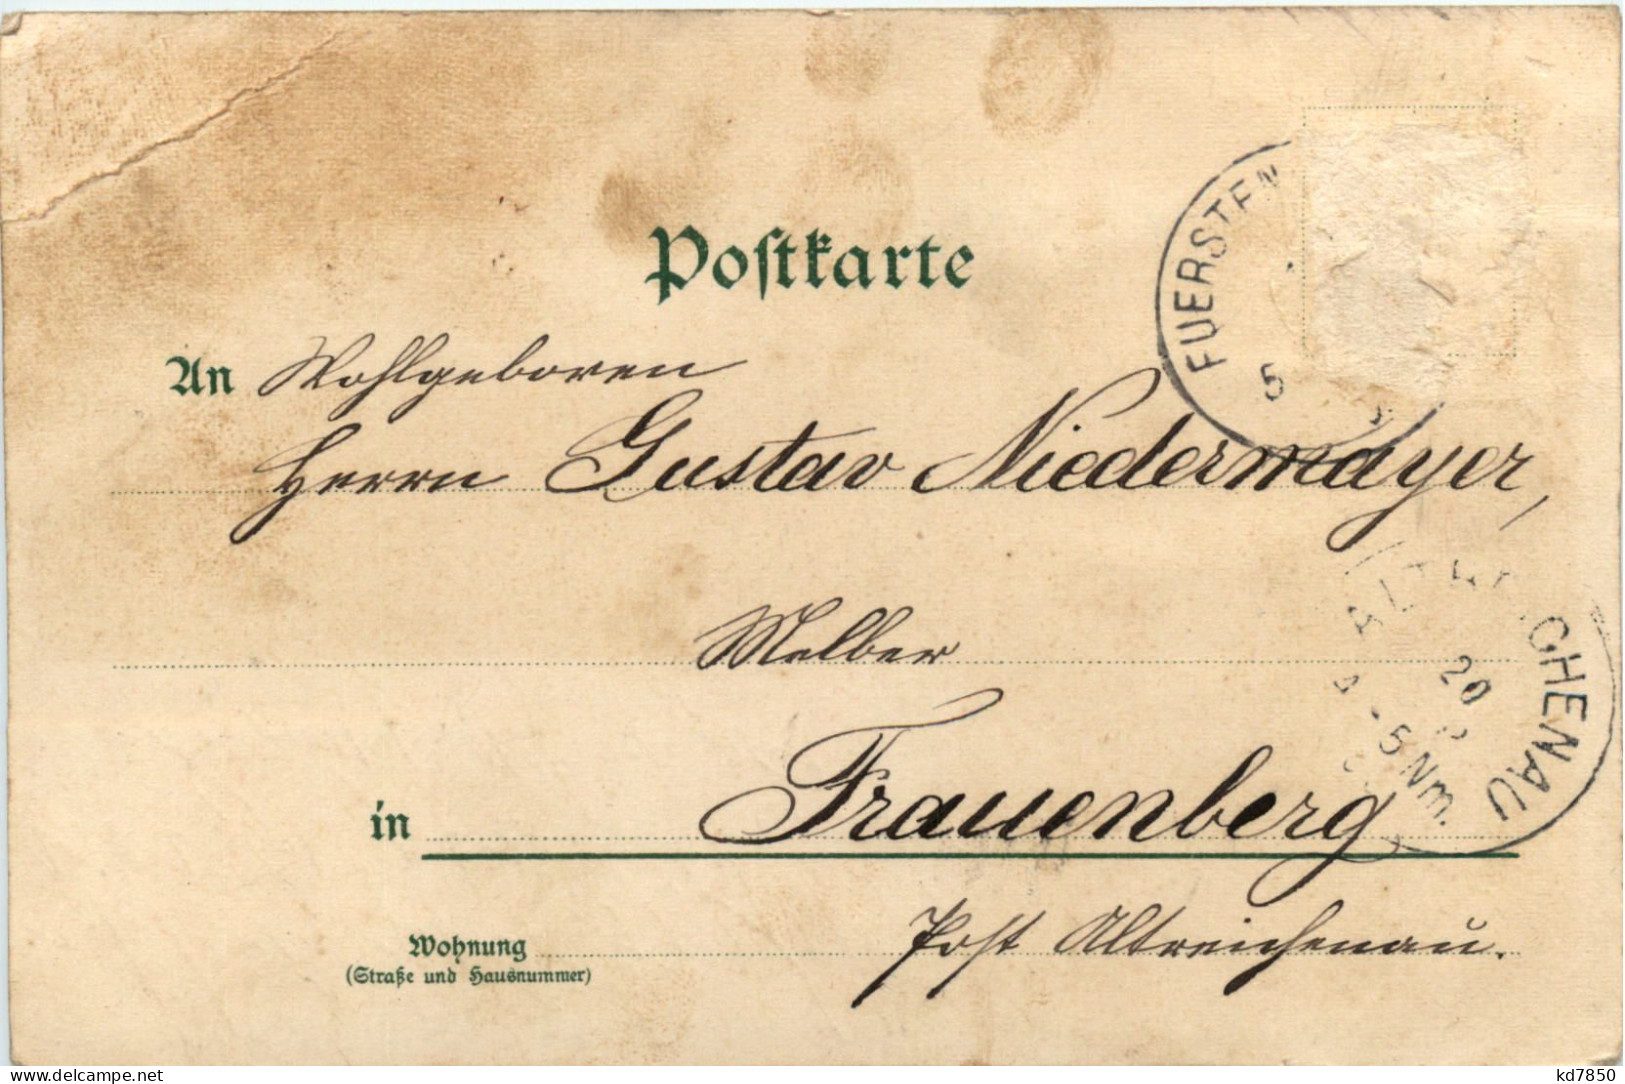 Postkarte
An Wohlgeboren
Herrn Gustav Niedermayer,
Melber
in Frauenberg
Post Altreichenau.
Wohnung
(Straße und Hausnummer)
FUERSTEN
5
20
5 Nm.
delcampe.net
kd7850